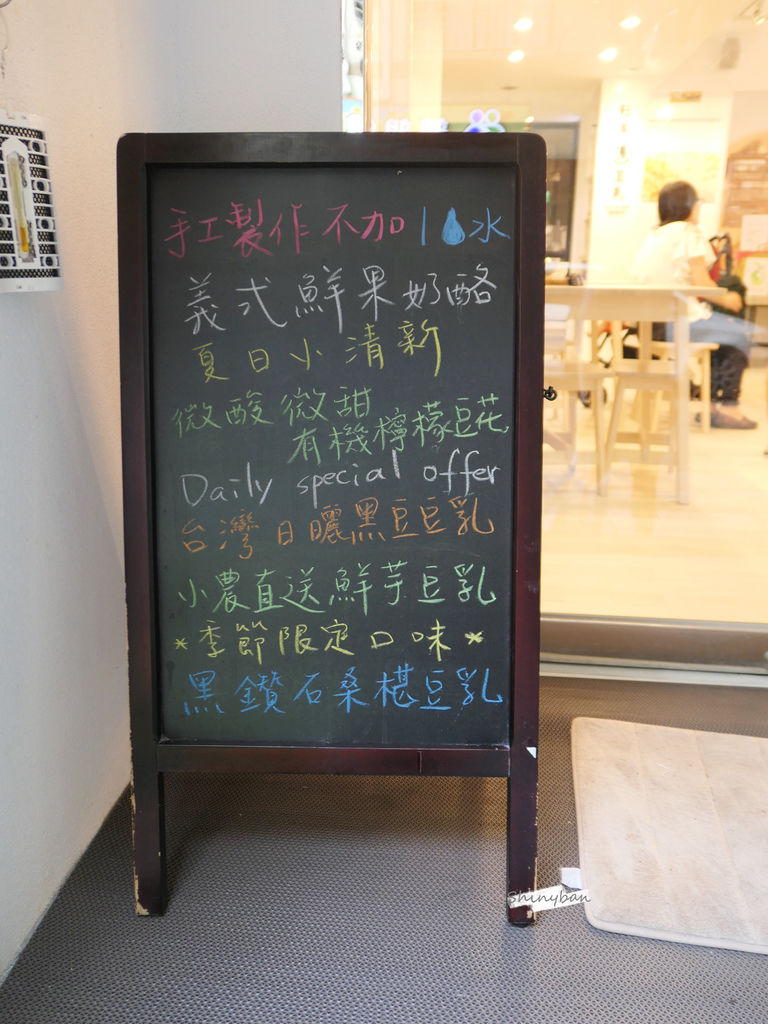 手工製作不加1水
義式鮮果奶酪
夏日小清新
微酸微甜
有機檸檬豆花
Daily special offer
台灣日曬黑豆豆乳
小農直送鮮芋豆乳
*季節限定口味*
黑鑽石桑椹豆乳
Shinyban